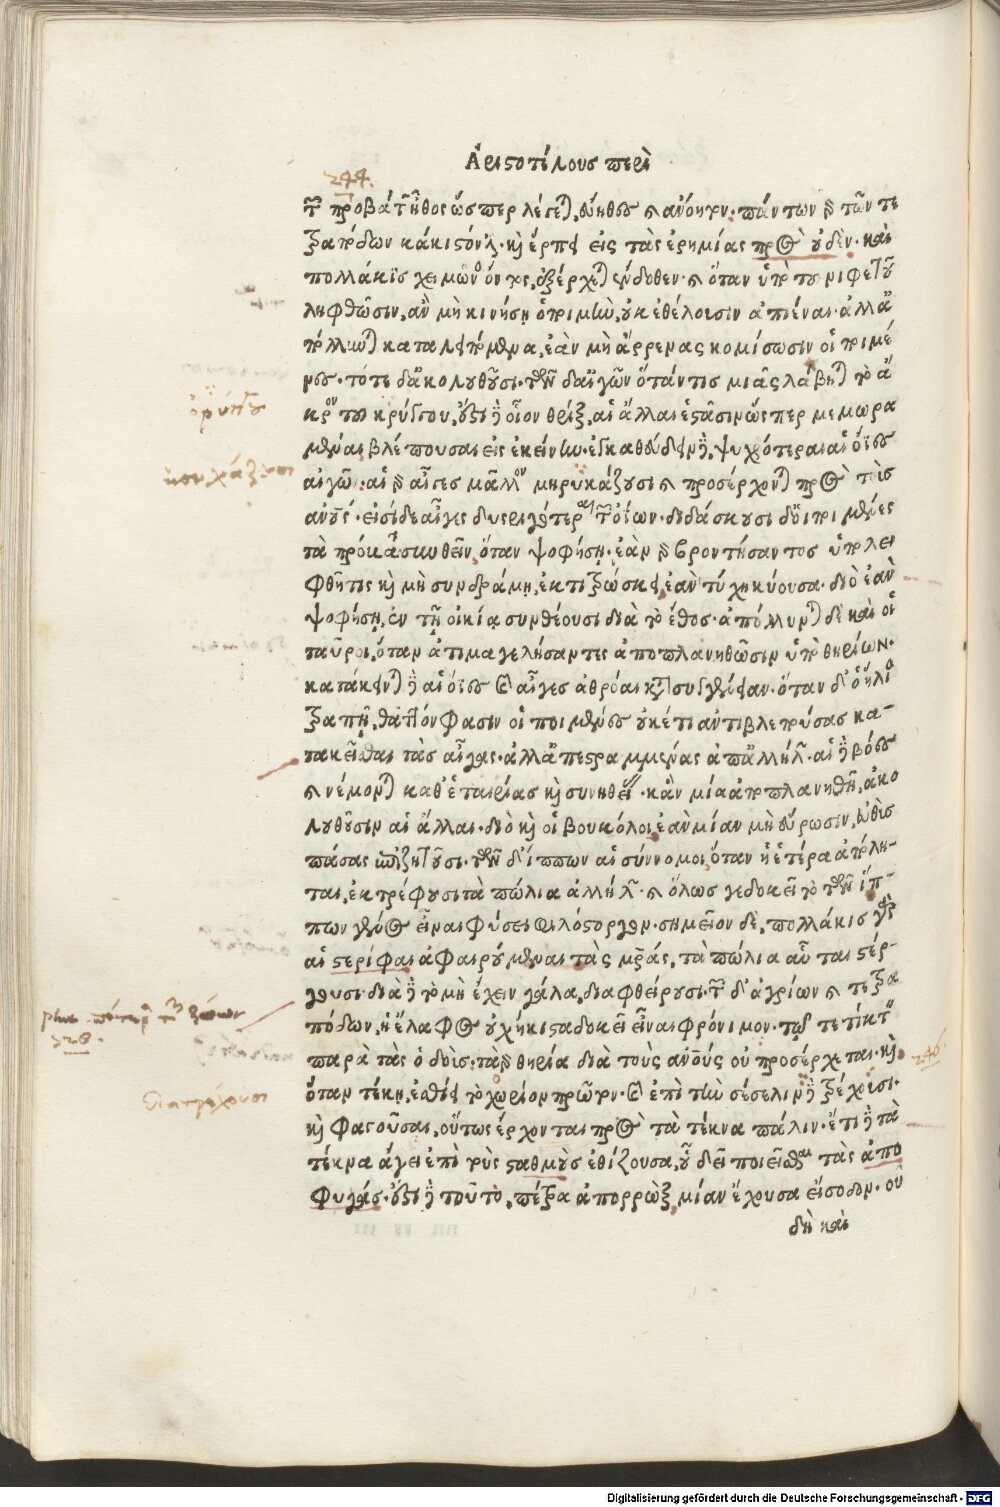 Ἀριστοτέλους περὶ
244.
τῶν προβάτων ἦθος ὥσπερ λέγεται, εὔηθες καὶ ἀνόητον. πάντων γὰρ τῶν τε
τραπόδων κάκιστόν ἐστι. καὶ ἕρπει εἰς τὰς ἐρημίας πρὸς οὐδέν. καὶ
πολλάκις χειμῶνος ὄντος, ἐξέρχεται ἔνδοθεν. καὶ ὅταν ὑπὸ τοῦ νιφετοῦ
ληφθῶσιν, ἂν μὴ κινήσῃ ὁ ποιμὴν, οὐκ ἐθέλουσιν ἀπιέναι. ἀλλὰ
ἀπόλλυνται καταλειπόμενα, ἐὰν μὴ ἄρρενας κομίσωσιν οἱ ποιμέ
νες. τότε δ' ἀκολουθοῦσι. τῶν δ' αἰγῶν ὅταν τις μιᾶς λάβηται τὸ ἄ
κρον τοῦ ἠρύγγου, ἔστι δὲ οἷον θρὶξ, αἱ ἄλλαι ἑστᾶσιν ὥσπερ μεμωρα
μέναι βλέπουσαι εἰς ἐκείνην. ἐγκαθεύδειν δὲ, ψυχρότεραι αἱ ὄιες
αἰγῶν. αἱ γὰρ αἶγες μᾶλλον μηρυκάζουσι καὶ προσέρχονται πρὸς τοὺς
ἀνούς. εἰσὶ δὲ αἶγες δυσριγότεραι τῶν ὀΐων. διδάσκουσι δὲ οἱ ποιμένες
τὰ πρόβατα συνθεῖν, ὅταν ψοφήσῃ. ἐὰν γὰρ βροντήσαντος ὑπολει
φθῇ τις καὶ μὴ συνδράμῃ, ἐκτιτρώσκει, ἐὰν τύχῃ κύουσα. διὸ ἐὰν
ψοφήσῃ, ἐν τῇ οἰκίᾳ συνθέουσι διὰ τὸ ἔθος. ἀπόλλυνται δὲ καὶ οἱ
ταῦροι, ὅταν ἀτιμαγελήσαντες ἀποπλανηθῶσιν ὑπὸ θηρίων.
κατάκεινται δὲ αἱ ὄιες καὶ αἶγες ἀθρόαι κατὰ συγγένειαν. ὅταν δ' ὁ ἥλιος
τραπῇ, θᾶττόν φασιν οἱ ποιμένες οὐκέτι ἀντιβλεπούσας κα-
τακεῖσθαι τὰς αἶγας. ἀλλ' ἀπεστραμμένας ἀπ' ἀλλήλων. αἱ δὲ βόες
καὶ νέμονται καθ' ἑταιρίας καὶ συνηθείας. κἂν μία ἀποπλανηθῇ, ἀκο
λουθοῦσιν αἱ ἄλλαι. διὸ καὶ οἱ βουκόλοι ἐὰν μίαν μὴ εὕρωσιν, εὐθὺς
πάσας ἐπιζητοῦσι. τῶν δ' ἵππων αἱ σύννομοι, ὅταν ἡ ἑτέρα ἀπόλη-
ται, ἐκτρέφουσι τὰ πώλια ἀλλήλων. καὶ ὅλως γε δοκεῖ τὸ τῶν ἵπ-
πων γένος εἶναι φύσει φιλόστοργον. σημεῖον δὲ, πολλάκις γὰρ
αἱ στερίφαι ἀφαιρούμεναι τὰς μητέρας, τὰ πώλια αὗται στέρ-
γουσι. διὰ δὲ τὸ μὴ ἔχειν γάλα, διαφθείρουσι. τῶν δ' ἀγρίων καὶ τετρα
πόδων, ἡ ἔλαφος οὐχ ἥκιστα δοκεῖ εἶναι φρόνιμον. τῷ τε τίκτειν
παρὰ τὰς ὁδοὺς. τὰ γὰρ θηρία διὰ τοὺς ἀνούς οὐ προσέρχεται. καὶ
ὅταν τέκῃ, ἐσθίει τὸ χωρίον πρῶτον. καὶ ἐπὶ τὴν σέσελιν δὲ τρέχουσι.
καὶ φαγοῦσαι, οὕτως ἔρχονται πρὸς τὰ τέκνα πάλιν. ἔτι δὲ τὰ
τέκνα ἄγει ἐπὶ τοὺς σταθμοὺς ἐθίζουσα, οὗ δεῖ ποιεῖσθαι τὰς ἀπο
φυγάς. ἔστι δὲ τοῦτο, πέτρα ἀπορρὼξ, μίαν ἔχουσα εἴσοδον. οὗ
δὴ καὶ
Digitalisierung gefördert durch die Deutsche Forschungsgemeinschaft - DFG